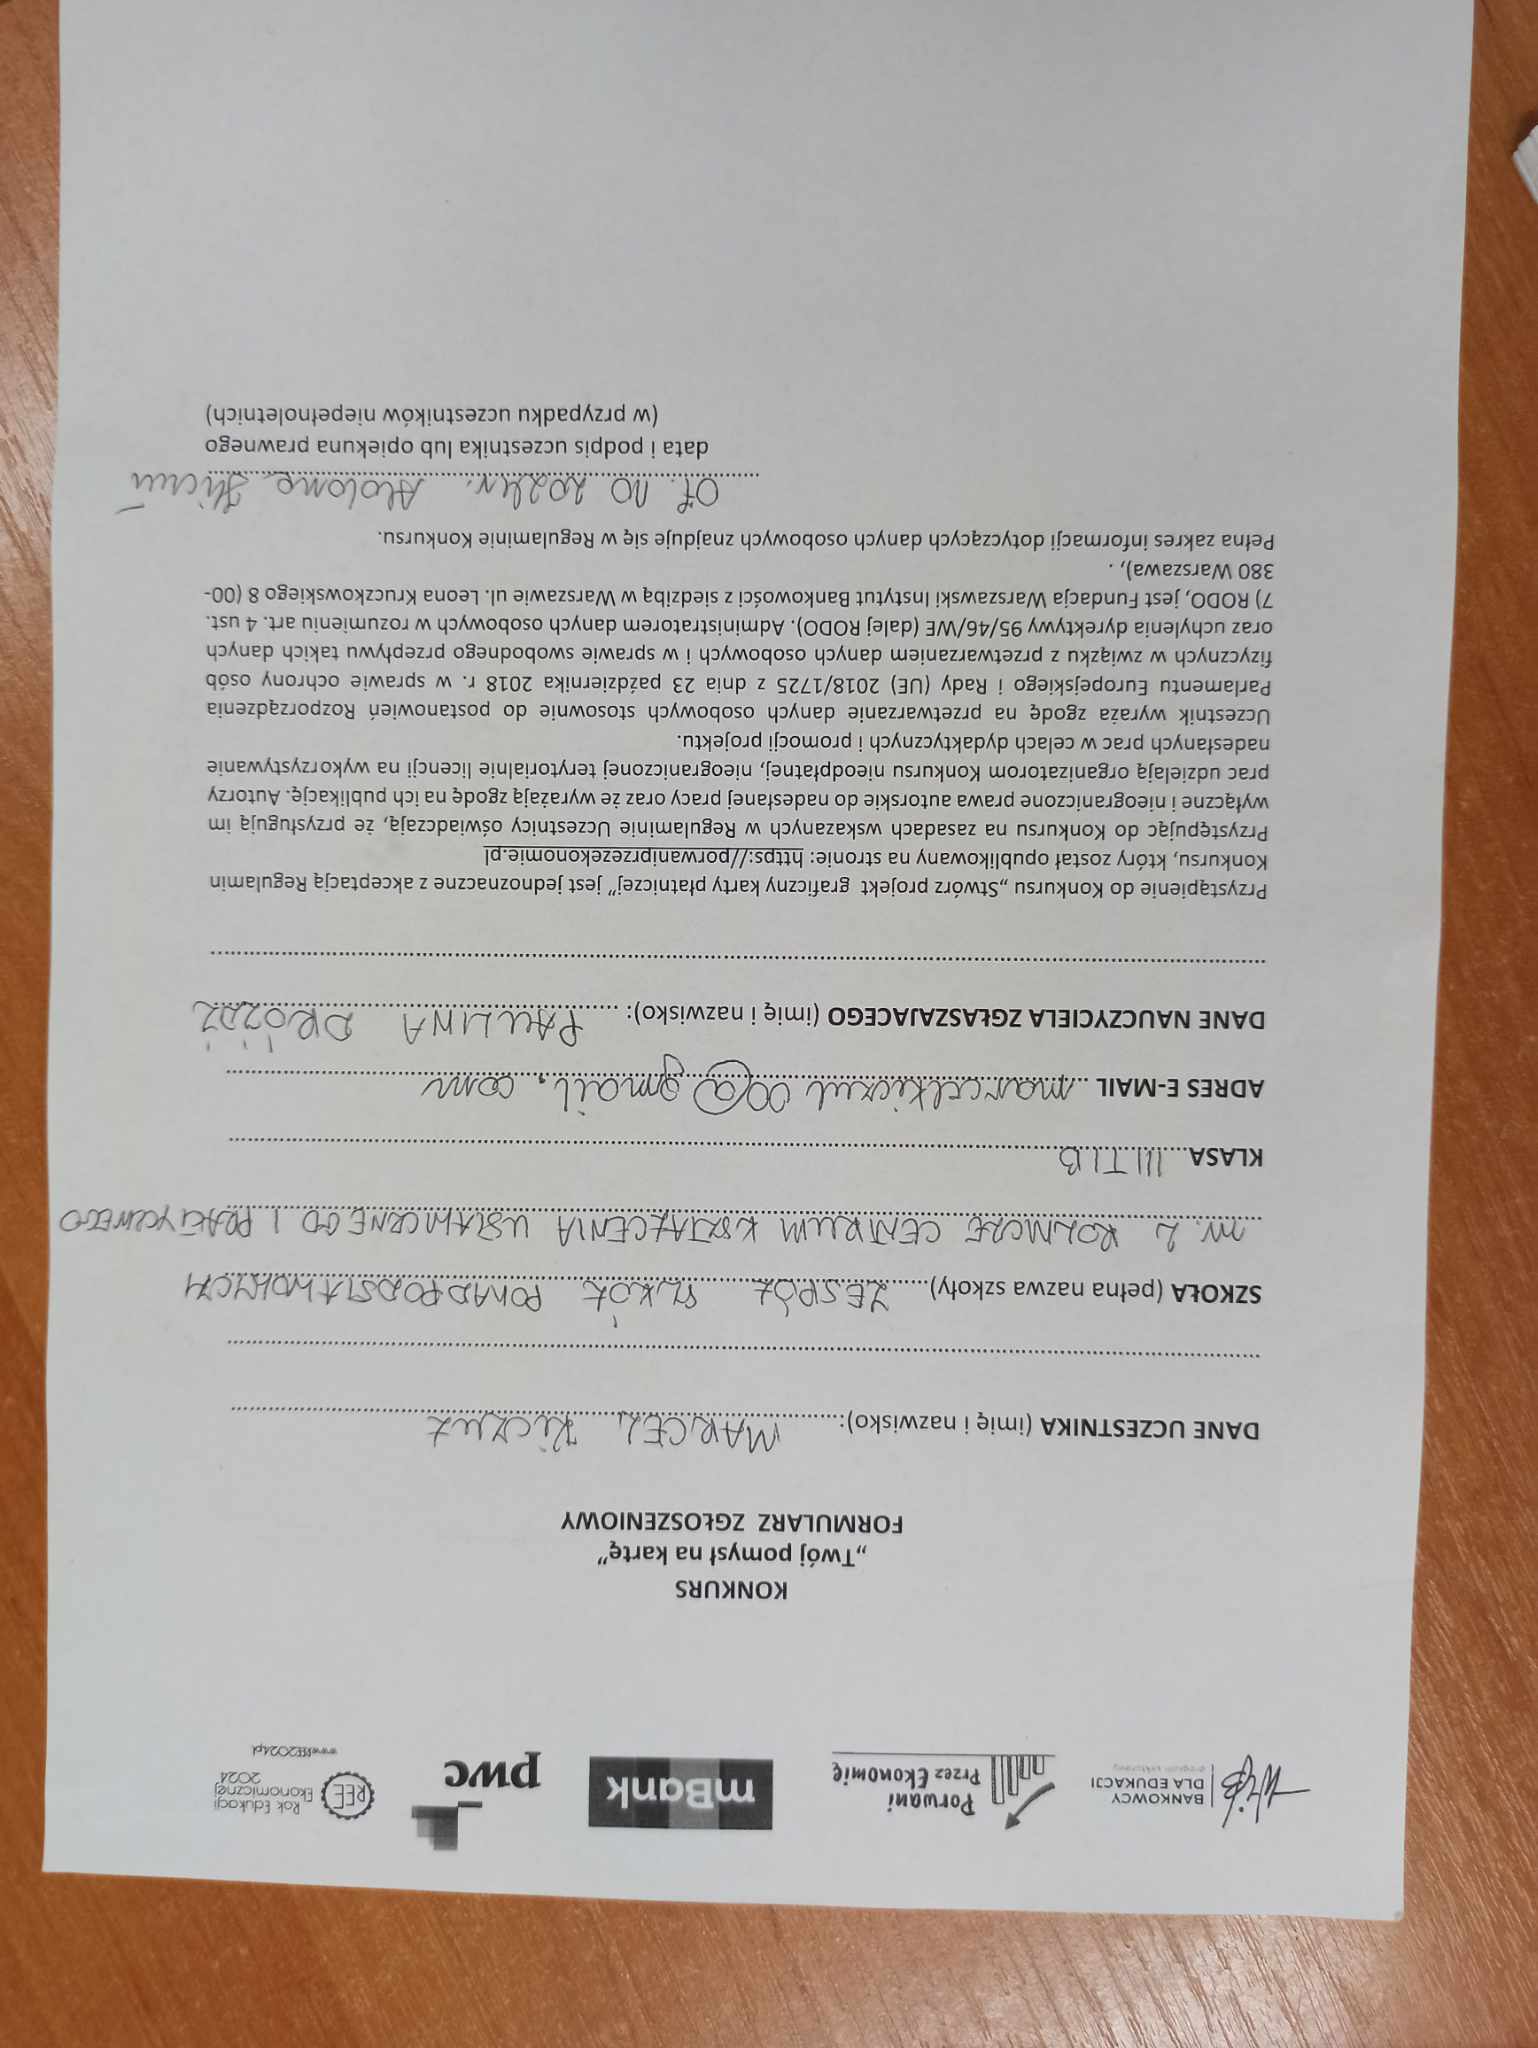 BANKOWCY
DLA EDUKACJI
Porwani
Przez Ekonomię
mBank
pwc
REE
Rok Edukacji
Ekonomicznej
2024
www.REE2024.pl
KONKURS
„Twój pomysł na kartę”
FORMULARZ ZGŁOSZENIOWY
DANE UCZESTNIKA (imię i nazwisko): MARCEL Kiczuł
SZKOŁA (pełna nazwa szkoły) ZESPÓŁ SZKÓŁ PONADPODSTAWOWYCH
nr. 2 ROLNICZE CENTRUM KSZTAŁCENIA USTAWICZNEGO I PRAKTYCZNEGO
KLASA III T I B
ADRES E-MAIL marcelkiczul00@gmail.com
DANE NAUCZYCIELA ZGŁASZAJACEGO (imię i nazwisko): PAULINA DRÓŻDŻ
Przystąpienie do Konkursu „Stwórz projekt graficzny karty płatniczej” jest jednoznaczne z akceptacją Regulamin
Konkursu, który został opublikowany na stronie: https://porwaniprzezekonomie.pl
Przystępując do Konkursu na zasadach wskazanych w Regulaminie Uczestnicy oświadczają, że przysługują im
wyłączne i nieograniczone prawa autorskie do nadesłanej pracy oraz że wyrażają zgodę na ich publikację. Autorzy
prac udzielają organizatorom Konkursu nieodpłatnej, nieograniczonej terytorialnie licencji na wykorzystywanie
nadesłanych prac w celach dydaktycznych i promocji projektu.
Uczestnik wyraża zgodę na przetwarzanie danych osobowych stosownie do postanowień Rozporządzenia
Parlamentu Europejskiego i Rady (UE) 2018/1725 z dnia 23 października 2018 r. w sprawie ochrony osób
fizycznych w związku z przetwarzaniem danych osobowych i w sprawie swobodnego przepływu takich danych
oraz uchylenia dyrektywy 95/46/WE (dalej RODO). Administratorem danych osobowych w rozumieniu art. 4 ust.
7) RODO, jest Fundacja Warszawski Instytut Bankowości z siedzibą w Warszawie ul. Leona Kruczkowskiego 8 (00-
380 Warszawa), .
Pełna zakres informacji dotyczących danych osobowych znajduje się w Regulaminie Konkursu.
2024r.
data i podpis uczestnika lub opiekuna prawnego
(w przypadku uczestników niepełnoletnich)